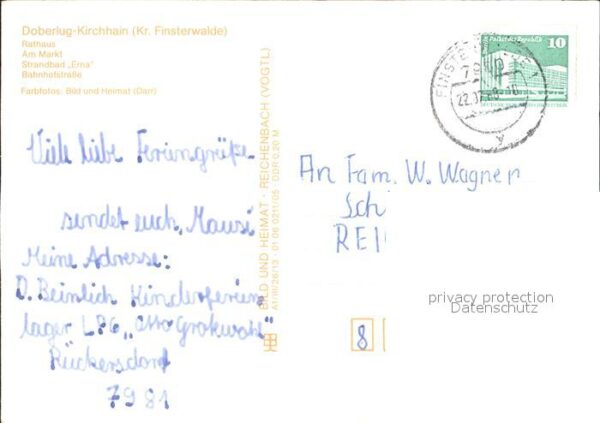 Doberlug-Kirchhain (Kr. Finsterwalde)
Rathaus
Am Markt
Strandbad „Erna"
Bahnhofstraße
Farbfotos: Bild und Heimat (Darr)
Viele liebe Feriengrüße
sendet euch, Mausi
Meine Adresse:
D. Beinlich Kinderferien
lager LPG „Otto Grotewohl"
Rückersdorf
7981
BILD UND HEIMAT · REICHENBACH (VOGTL)
A1/III/26/13 · 01 06 0211/05 · DDR 0,20 M
10
An Fam. W. Wagner
Sch
REI
8
privacy protection
Datenschutz